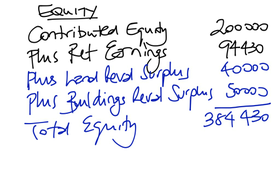 EQUITY
Contributed Equity 200000
Plus Ret Earnings 94430
Plus Land Reval Surplus 40000
Plus Buildings Reval Surplus 50000
Total Equity 384430